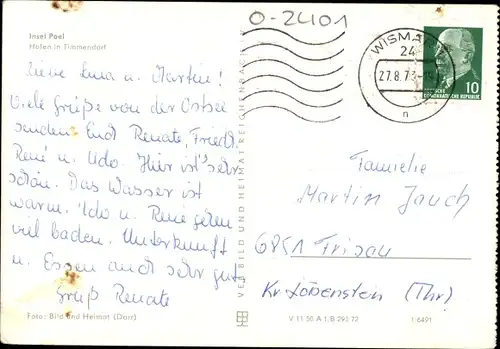 Insel Poel
Hafen in Timmendorf
O-2401
WISMAR
24
27.8.73
n
10
DEUTSCHE
DEMOKRATISCHE REPUBLIK
Liebe Luca u. Martin!
Viele Grüße von der Ostsee
senden Euch Renate, Friedh.
René u. Udo. Hier ist's sehr
schön. Das Wasser ist
warm. Udo u. René gehen
viel baden. Unterkunft
u. Essen auch sehr gut.
Gruß Renate
Foto: Bild und Heimat (Darr)
VEB BILD UND HEIMAT REICHENBACH I. V.
Familie
Martin Jauch
6851 Frisau
Kr. Lobenstein (Thr)
V 11 50 A 1/B 293/72
1/6491